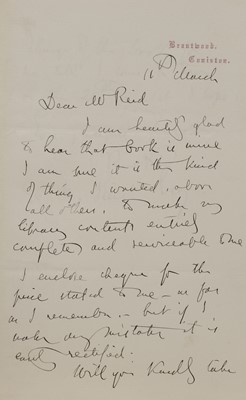 Brantwood,
Coniston.
11th March
Dear Mr Reid
I am heartily glad
to hear that book is mine
I am sure it is the kind
of thing I wanted, above
all others, to make my
library contents entirely
complete and serviceable to me
I enclose cheque for the
price stated to me – as far
as I remember – but if I
make any mistake it is
easily rectified.
Will you kindly take